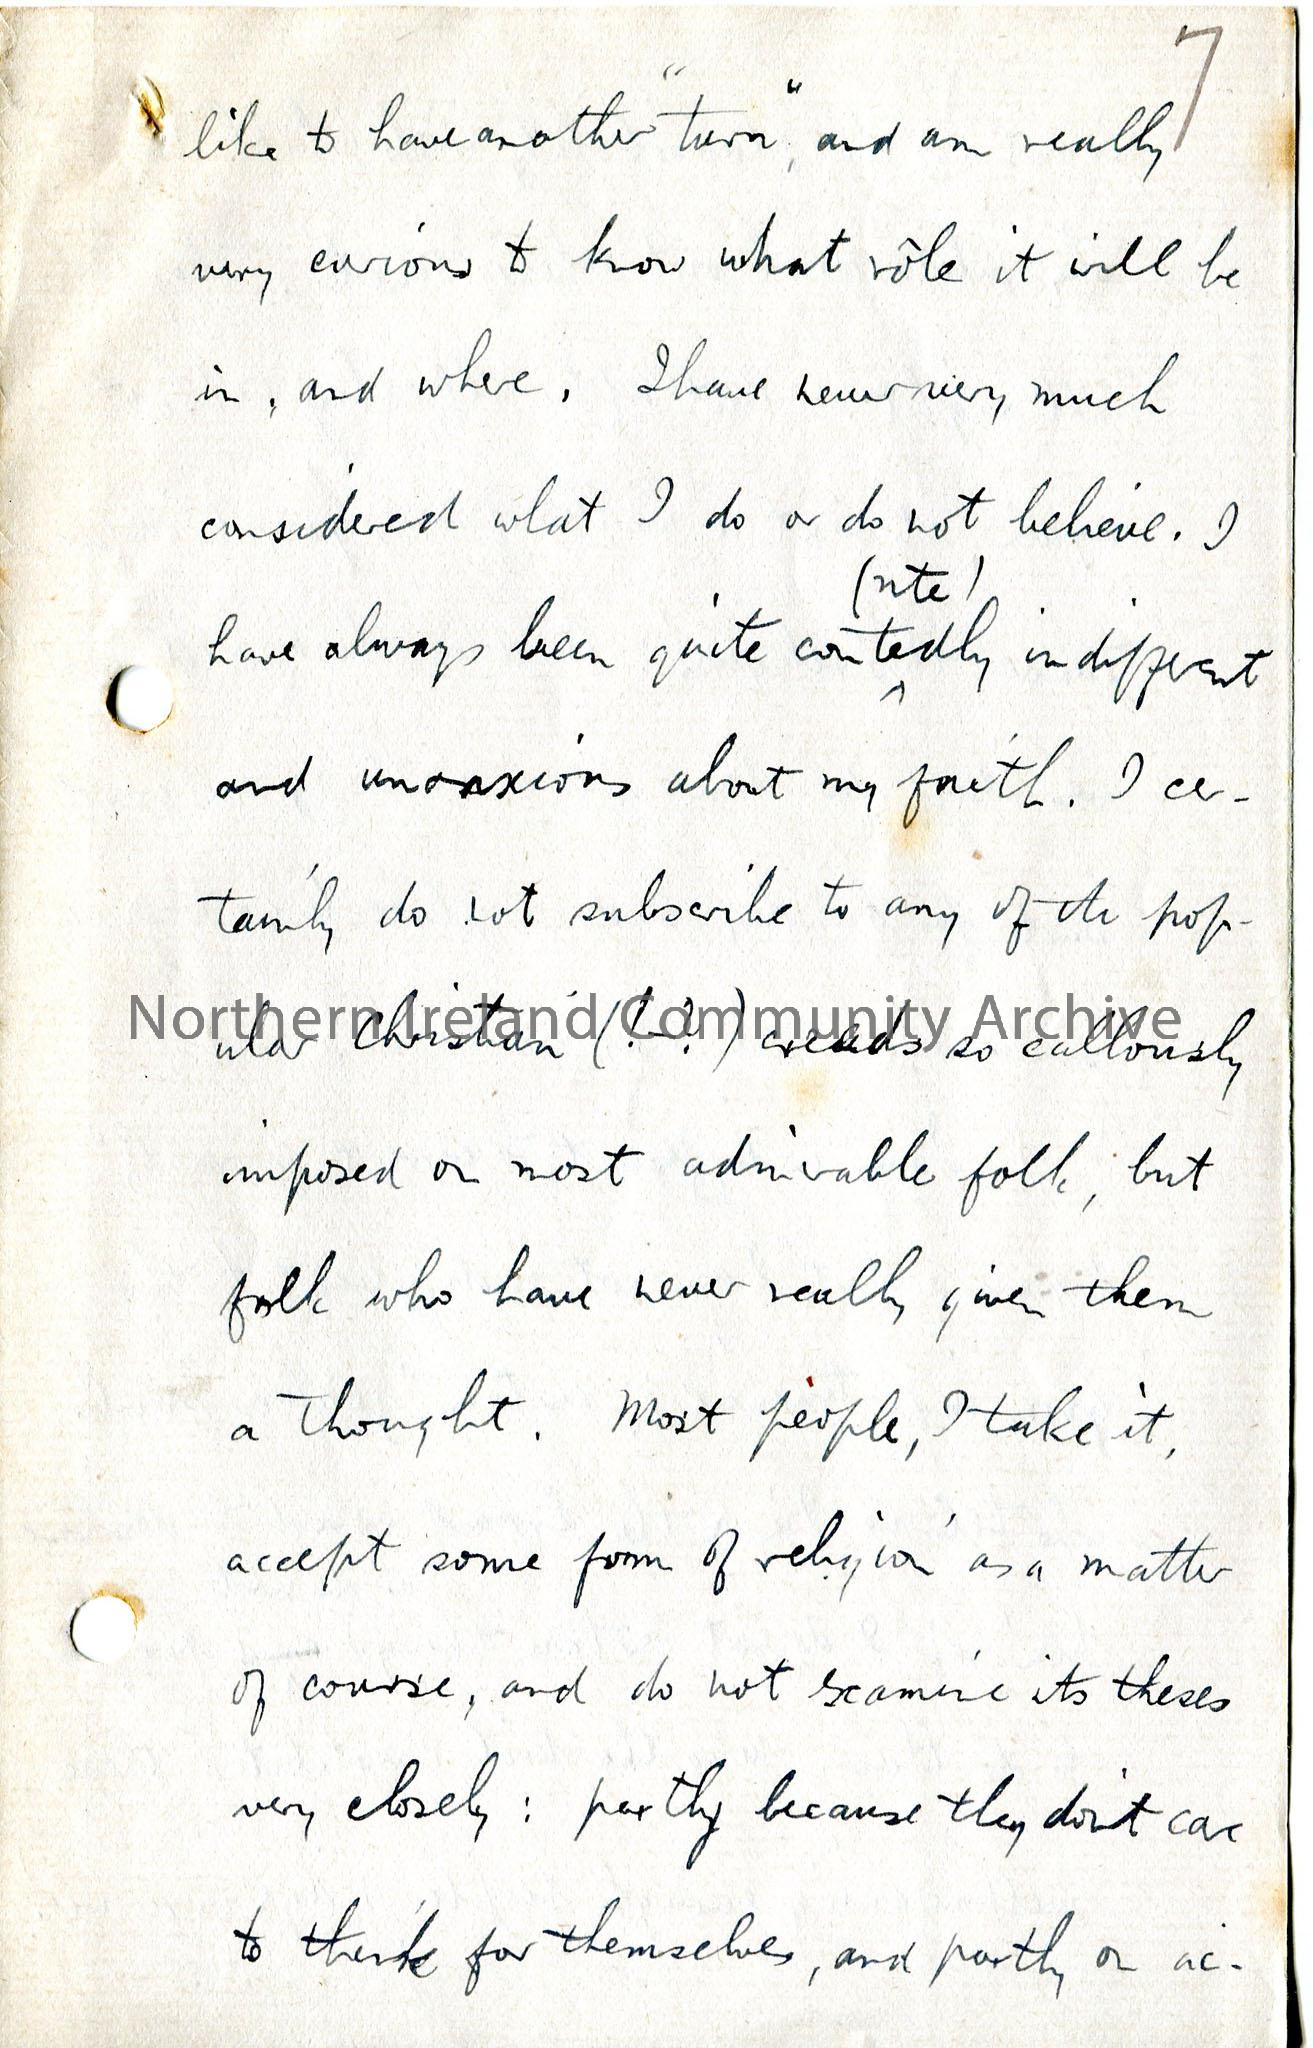 7
like to have another "turn", and am really
very curious to know what rôle it will be
in, and where. I have never very much
considered what I do or do not believe. I
(nte)
have always been quite contedly indifferent
^
and unanxious about my faith. I cer-
tainly do not subscribe to any of the pop-
ular Christian (!-?) creeds so callously
Northern Ireland Community Archive
imposed on most admirable folk, but
folk who have never really given them
a thought. Most people, I take it,
accept some form of religion as a matter
of course, and do not examine its theses
very closely: partly because they don't care
to think for themselves, and partly on ac-